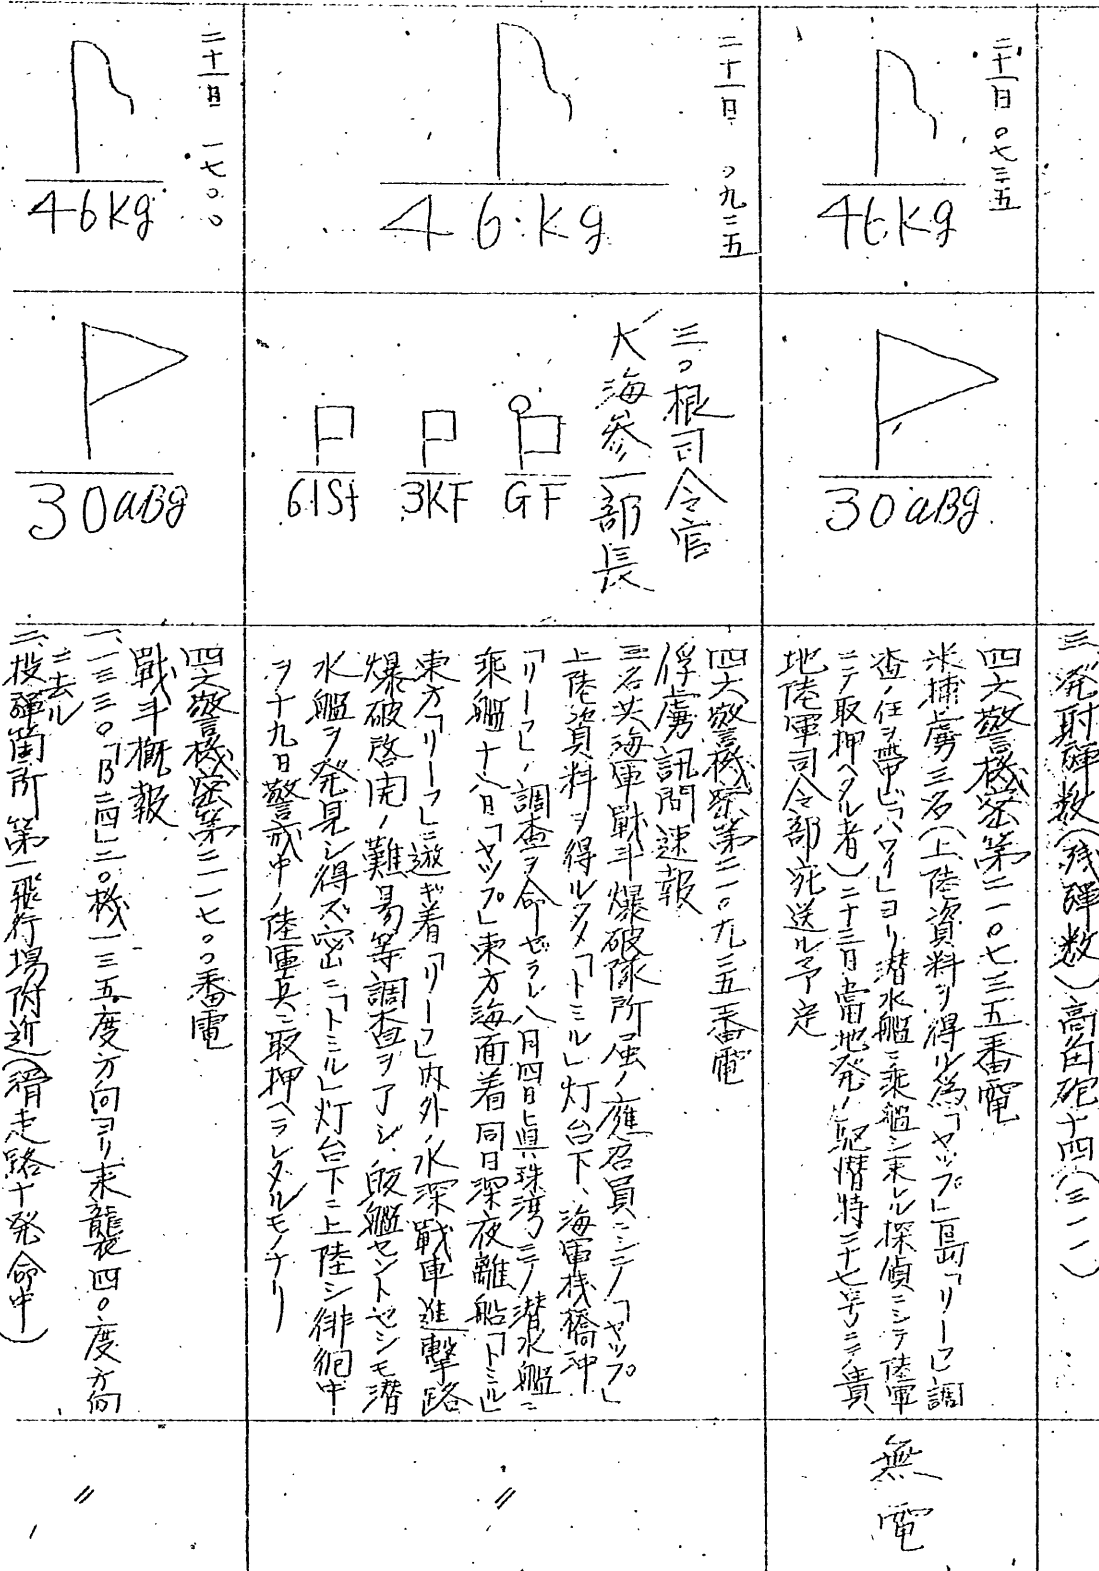 三、発射弾数(残弾数)高角砲十四(三一一)
二十一日 〇七三五
46kg
30aBg
四六警機密第二一〇七三五番電
米捕虜三名(上陸資料ヲ得ル為「ヤップ」島「リーフ」調
査ノ任ヲ帯ビ「ハワイ」ヨリ潜水艦ニ乘艦シ来レル探偵ニシテ陸軍
ニテ取押ヘタル者)二十三日當地発ノ駆潜特二十七号ニテ貴
地陸軍司令部宛送ル予定
無電
二十一日 〇九三五
46kg
三〇根司令官
大海参一部長
GF
3KF
61Sf
四六警機密第二一〇九三五番電
俘虜訊問速報
三名共海軍戦斗爆破隊所属ノ應召員ニシテ「ヤップ」
上陸資料ヲ得ルタメ「トミル」灯台下、海軍桟橋沖
「リーフ」ノ調査ヲ命ゼラレ八月四日真珠湾ニテ潜水艦ニ
乘艦十八日「ヤップ」東方海面着同日深夜離船「トミル」
東方「リーフ」ニ遊ギ着「リーフ」内外ノ水深戦車進撃路
爆破啓開ノ難易等調査ヲ了シ、皈艦セントセシモ潜
水艦ヲ発見シ得ズ密ニ「トミル」灯台下ニ上陸シ徘徊中
ヲ十九日警戒中ノ陸軍兵ニ取押ヘラレタルモノナリ
〃
二十一日 一七〇〇
46kg
30aBg
四六警機密第二一一七〇〇番電
戰斗概報
一、一三三〇「B二四」二〇機一三五度方向ヨリ来襲四〇度方向
ニ去ル
二、投弾箇所 第一飛行場附近(滑走路十発命中)
〃